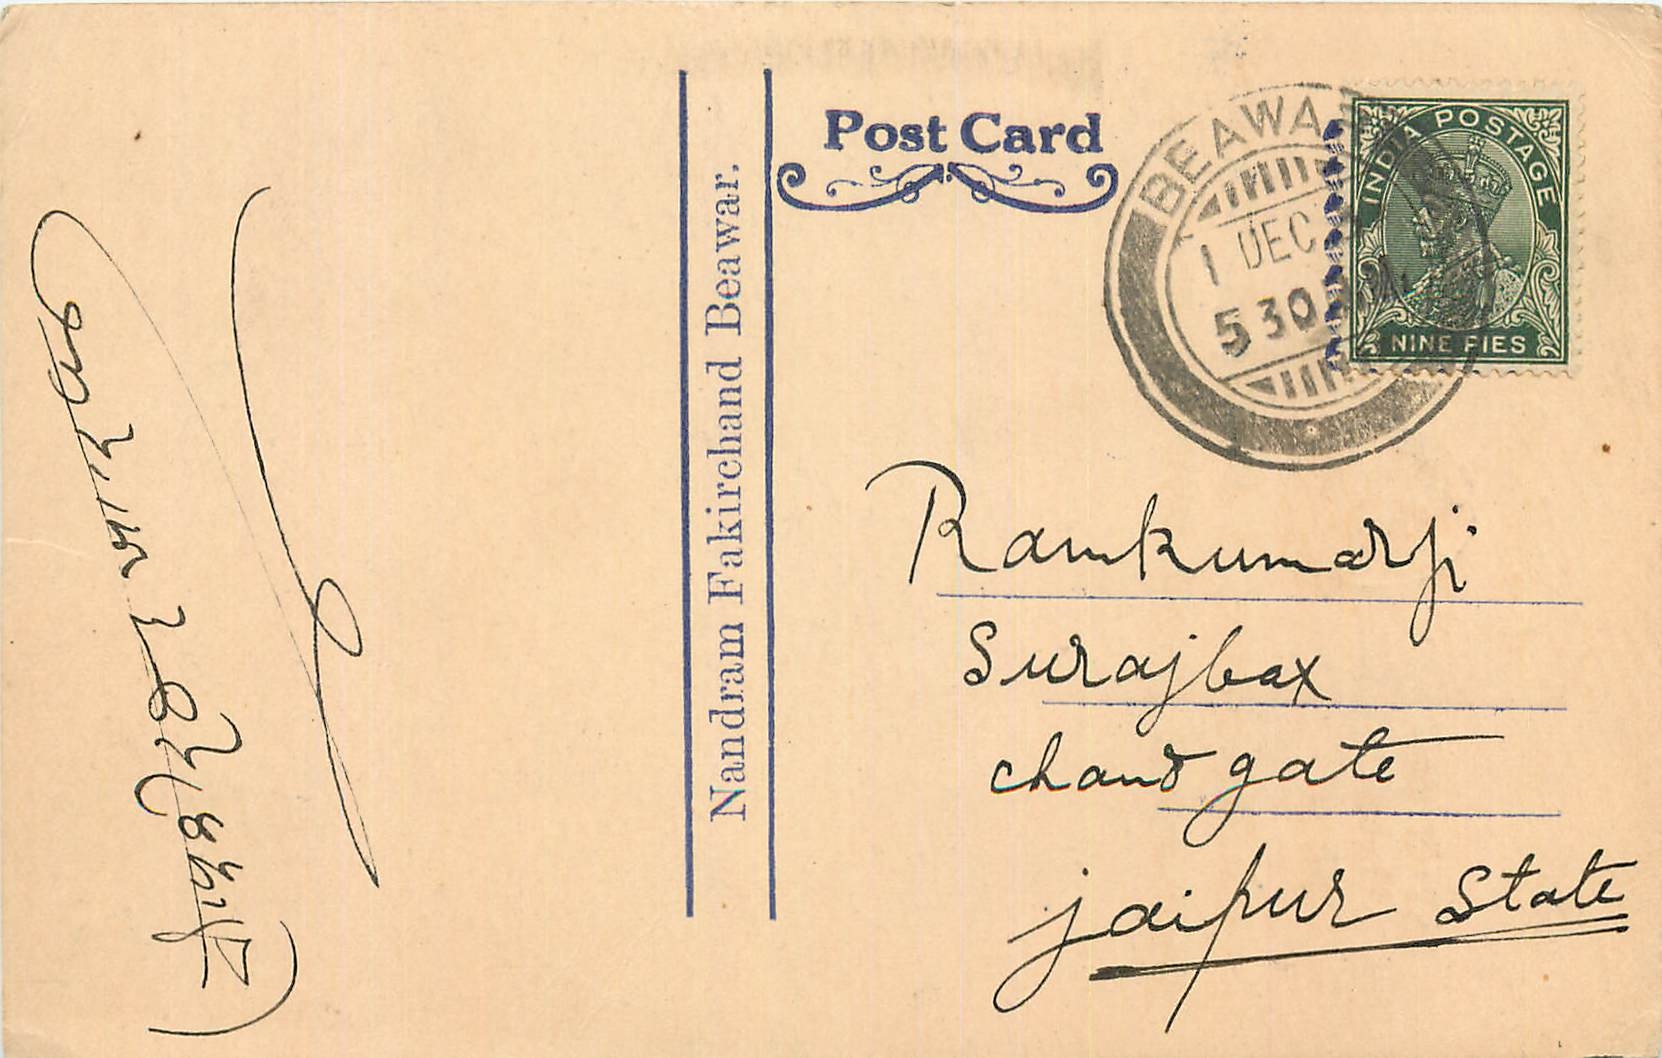 Post Card
Nandram Fakirchand Beawar.
BEAWAR
1 DEC
5 30
INDIA POSTAGE
NINE PIES
Ramkumarji
Surajbax
chand gate
jaipur State